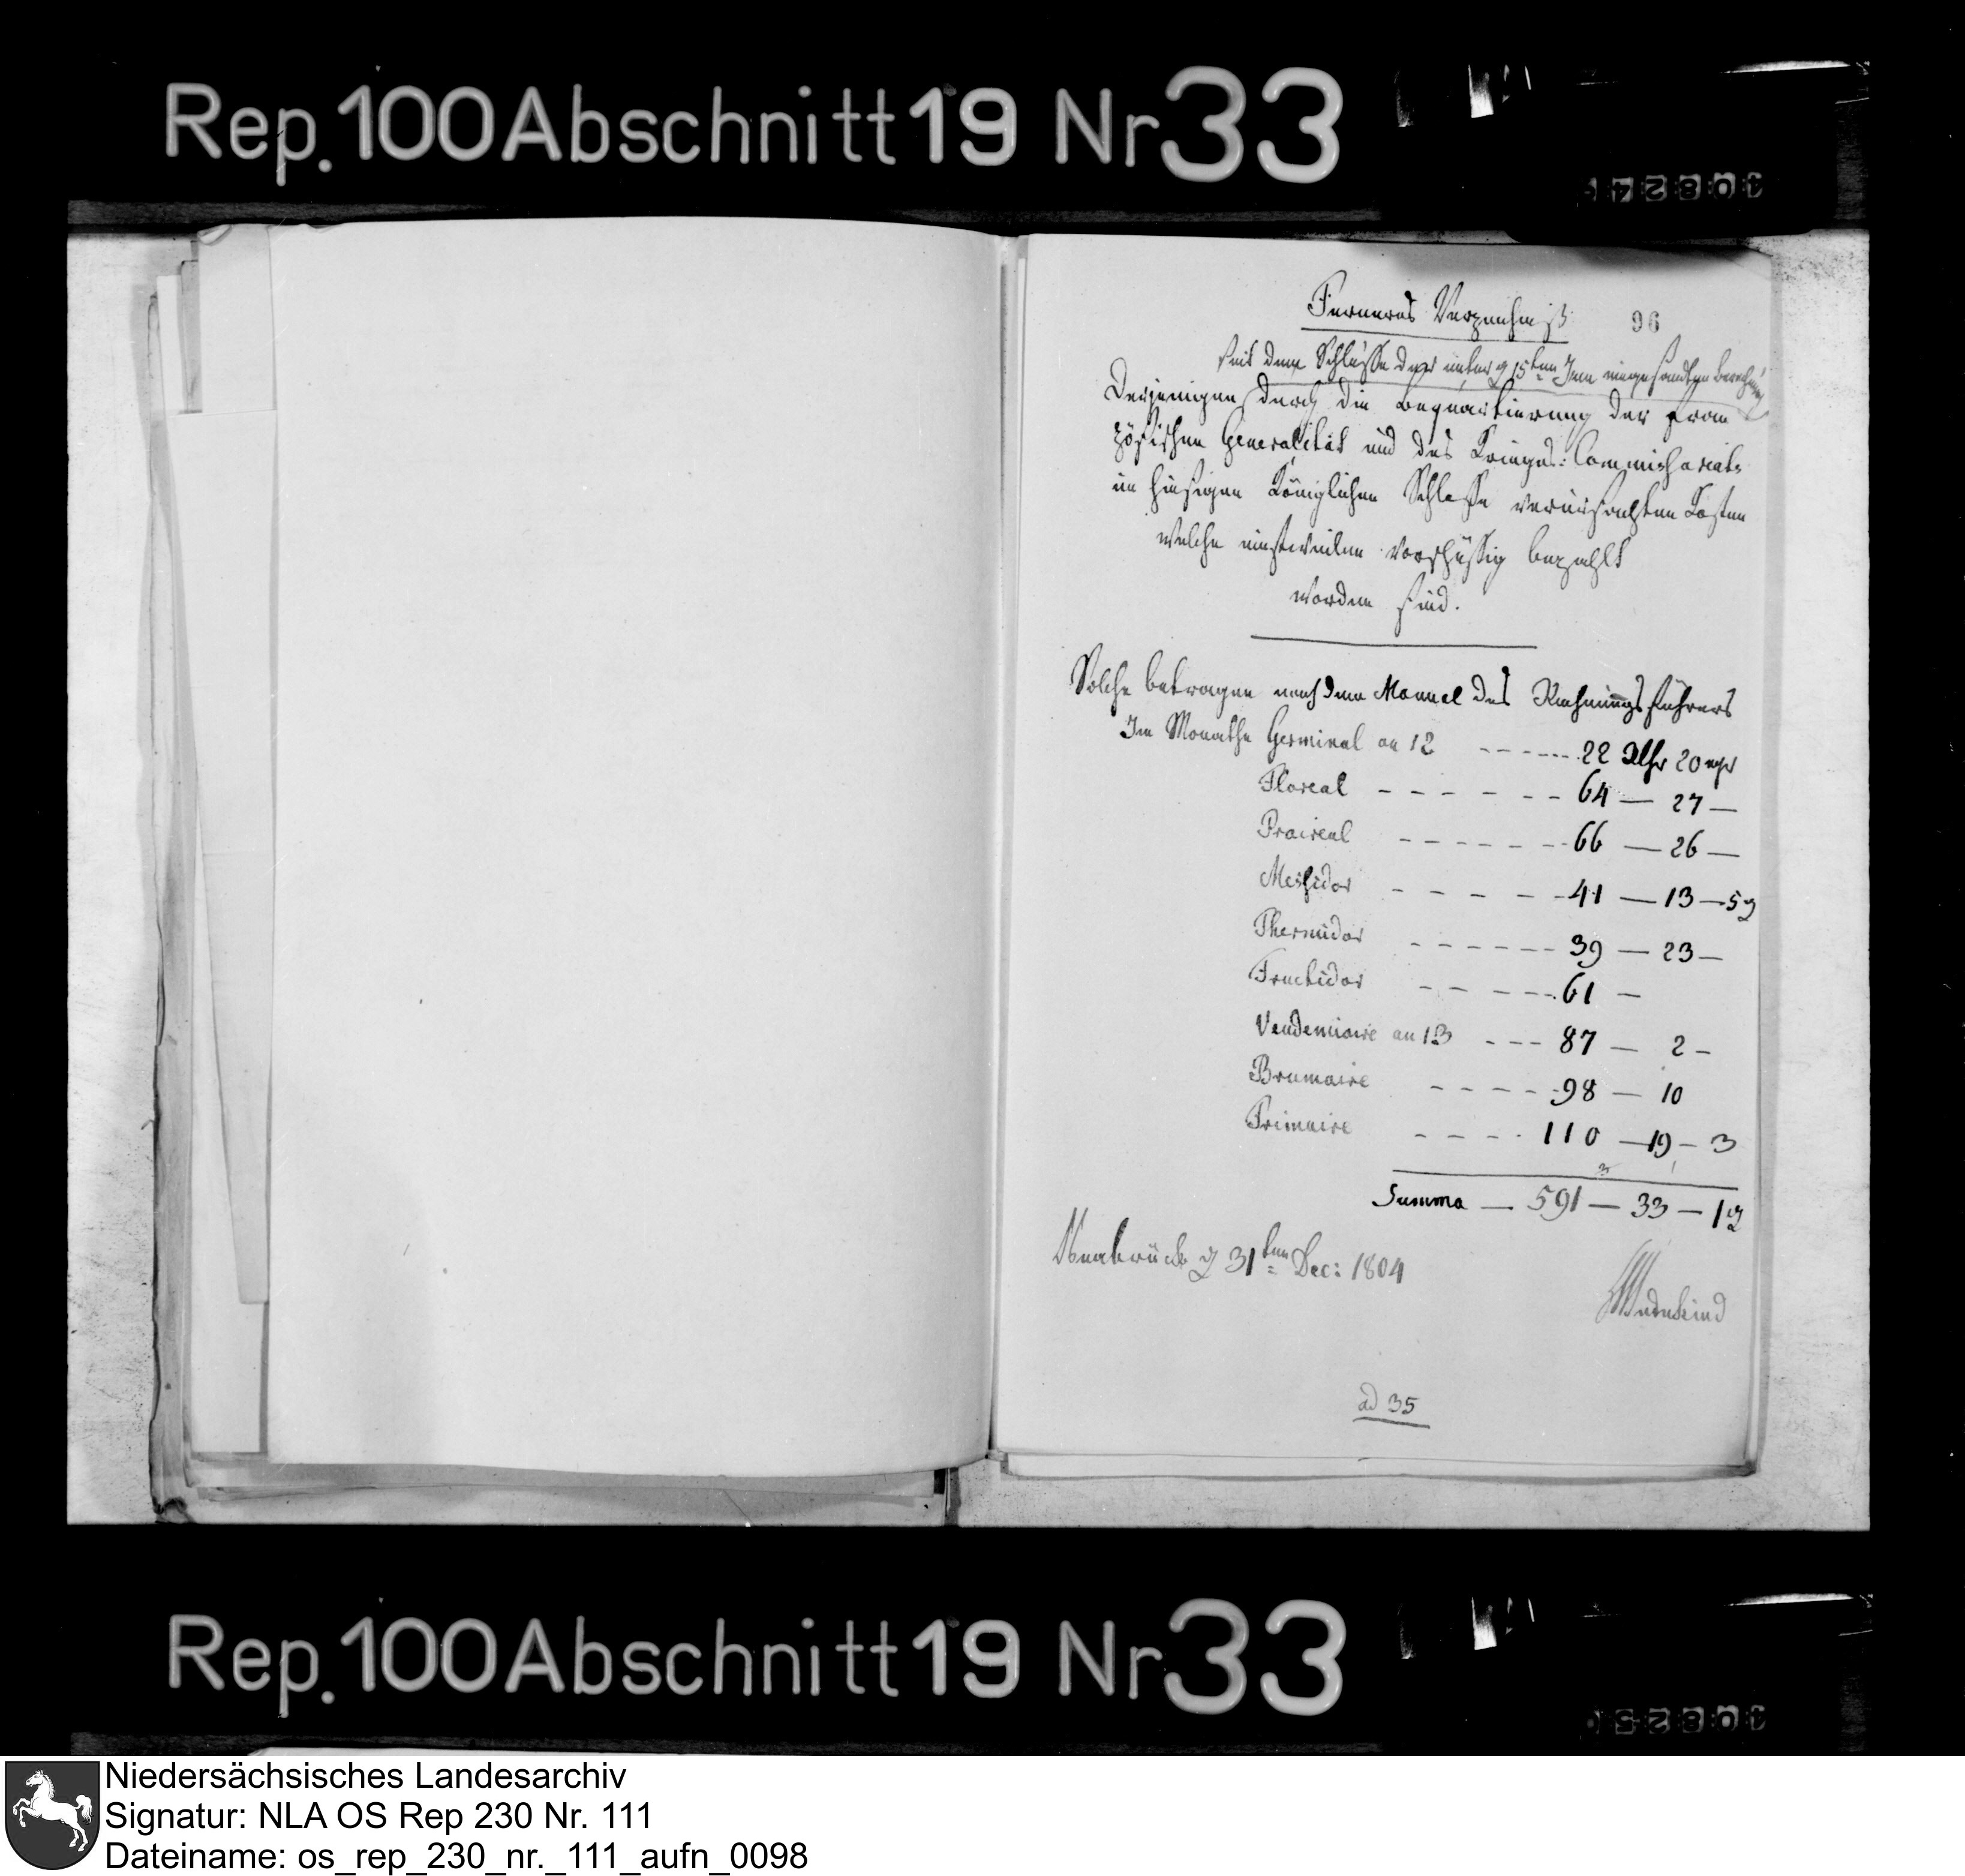 Rep. 100 Abschnitt 19 Nr 33
10824
96
Ferneres Verzeichniß
seit dem Schlusse der unterm 15ten Jun eingesandten Berechnung
Derjenigen durch die Bequartierung der fran
zösischen Generalität und des Krieges: Commissariats
im hiesigen Königlichen Schlosse verursachten Kosten
welche einstweilen vorschüssig bezahlt
worden sind.
Solche betragen nach dem Manual des Rechnungsführers
Im Monathe Germinal an 12 - - - - - - 22 Rthr 20 mgr
Floreal - - - - - - - 64 — 27 —
Praireal - - - - - - - 66 — 26 —
Messidor - - - - - - 41 — 13 — 5 ₰
Thermidor - - - - - - 39 — 23 —
Fructidor - - - - - - 61 —
Vendemiaire an 13 - - - 87 — 2 -
Brumaire - - - - - 98 — 10
Frimaire - - - - 110 — 19 - 3
Summa — 591 — 33 — 1 ₰
Osnabrück d 31ten Dec: 1804
ad 35
Rep. 100 Abschnitt 19 Nr 33
10825
Niedersächsisches Landesarchiv
Signatur: NLA OS Rep 230 Nr. 111
Dateiname: os_rep_230_nr._111_aufn_0098